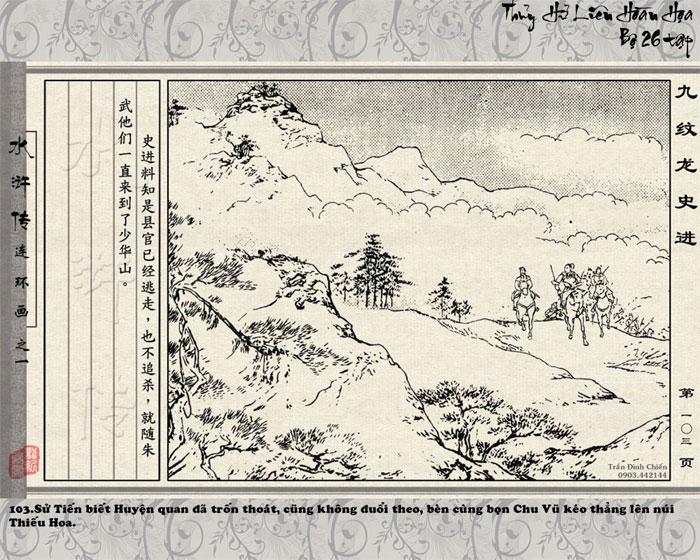 Thủy Hử Liên Hoàn Họa
Bộ 26 tập
九纹龙史进
第一〇三页
史进料知是县官已经逃走，也不追杀，就随朱
武他们一直来到了少华山。
水浒传
水浒传连环画之一
Trần Đình Chiến
0903.442144
103.Sử Tiến biết Huyện quan đã trốn thoát, cũng không đuổi theo, bèn cùng bọn Chu Vũ kéo thẳng lên núi
Thiếu Hoa.